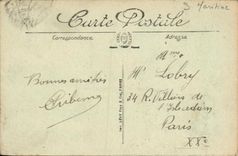 Carte Postale
Correspondance
Adresse
Bonnes amitiés
Mme
Mr Lobry
34 R. Villiers de
l'Isle Adam
Paris
XXe